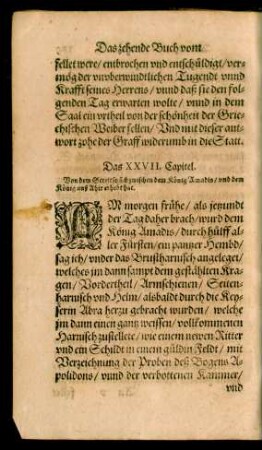 Das zehende Buch vom
fellet were/ embrochen vnd entschüldigt/ ver-
mög der vnvberwindtlichen Tugendt vnnd
Krafft seines Herrens/ vnnd daß sie den fol-
genden Tag erwarten wolte/ vnnd in dem
Saal ein vrtheil von der schönheit der Grie-
chischen Weiber fellen/ Vnd mit dieser ant-
wort zohe der Graff widerumb in die Statt.
Das XXVII. Capitel.
Von dem Streit so sich zwischen dem König Amadis/ vnd dem
König auß erhebt hat.
AM morgen frühe/ als jetzundt
der Tag daher brach/ wurd dem
König Amadis/ durch hülff al-
ler Fürsten/ ein pantzer Hembd/
sag ich/ vnder das Brustharnusch angeleget/
welches im dann sampt dem gestählten Kra-
gen/ Vordertheil/ Armschienen/ Seiten-
harnusch vnd Helm/ alsbaldt durch die Key-
serin Abra herzu gebracht wurden/ welche
jm dann einen gantz weissen/ vollkommenen
Harnisch zustellete/ wie einem newen Ritter
vnd ein Schildt in einem güldin Feldt/ mit
Verzeichnung der Proben deß Bogens A-
polidons/ vnnd der verbottenen Kammer/
vnd